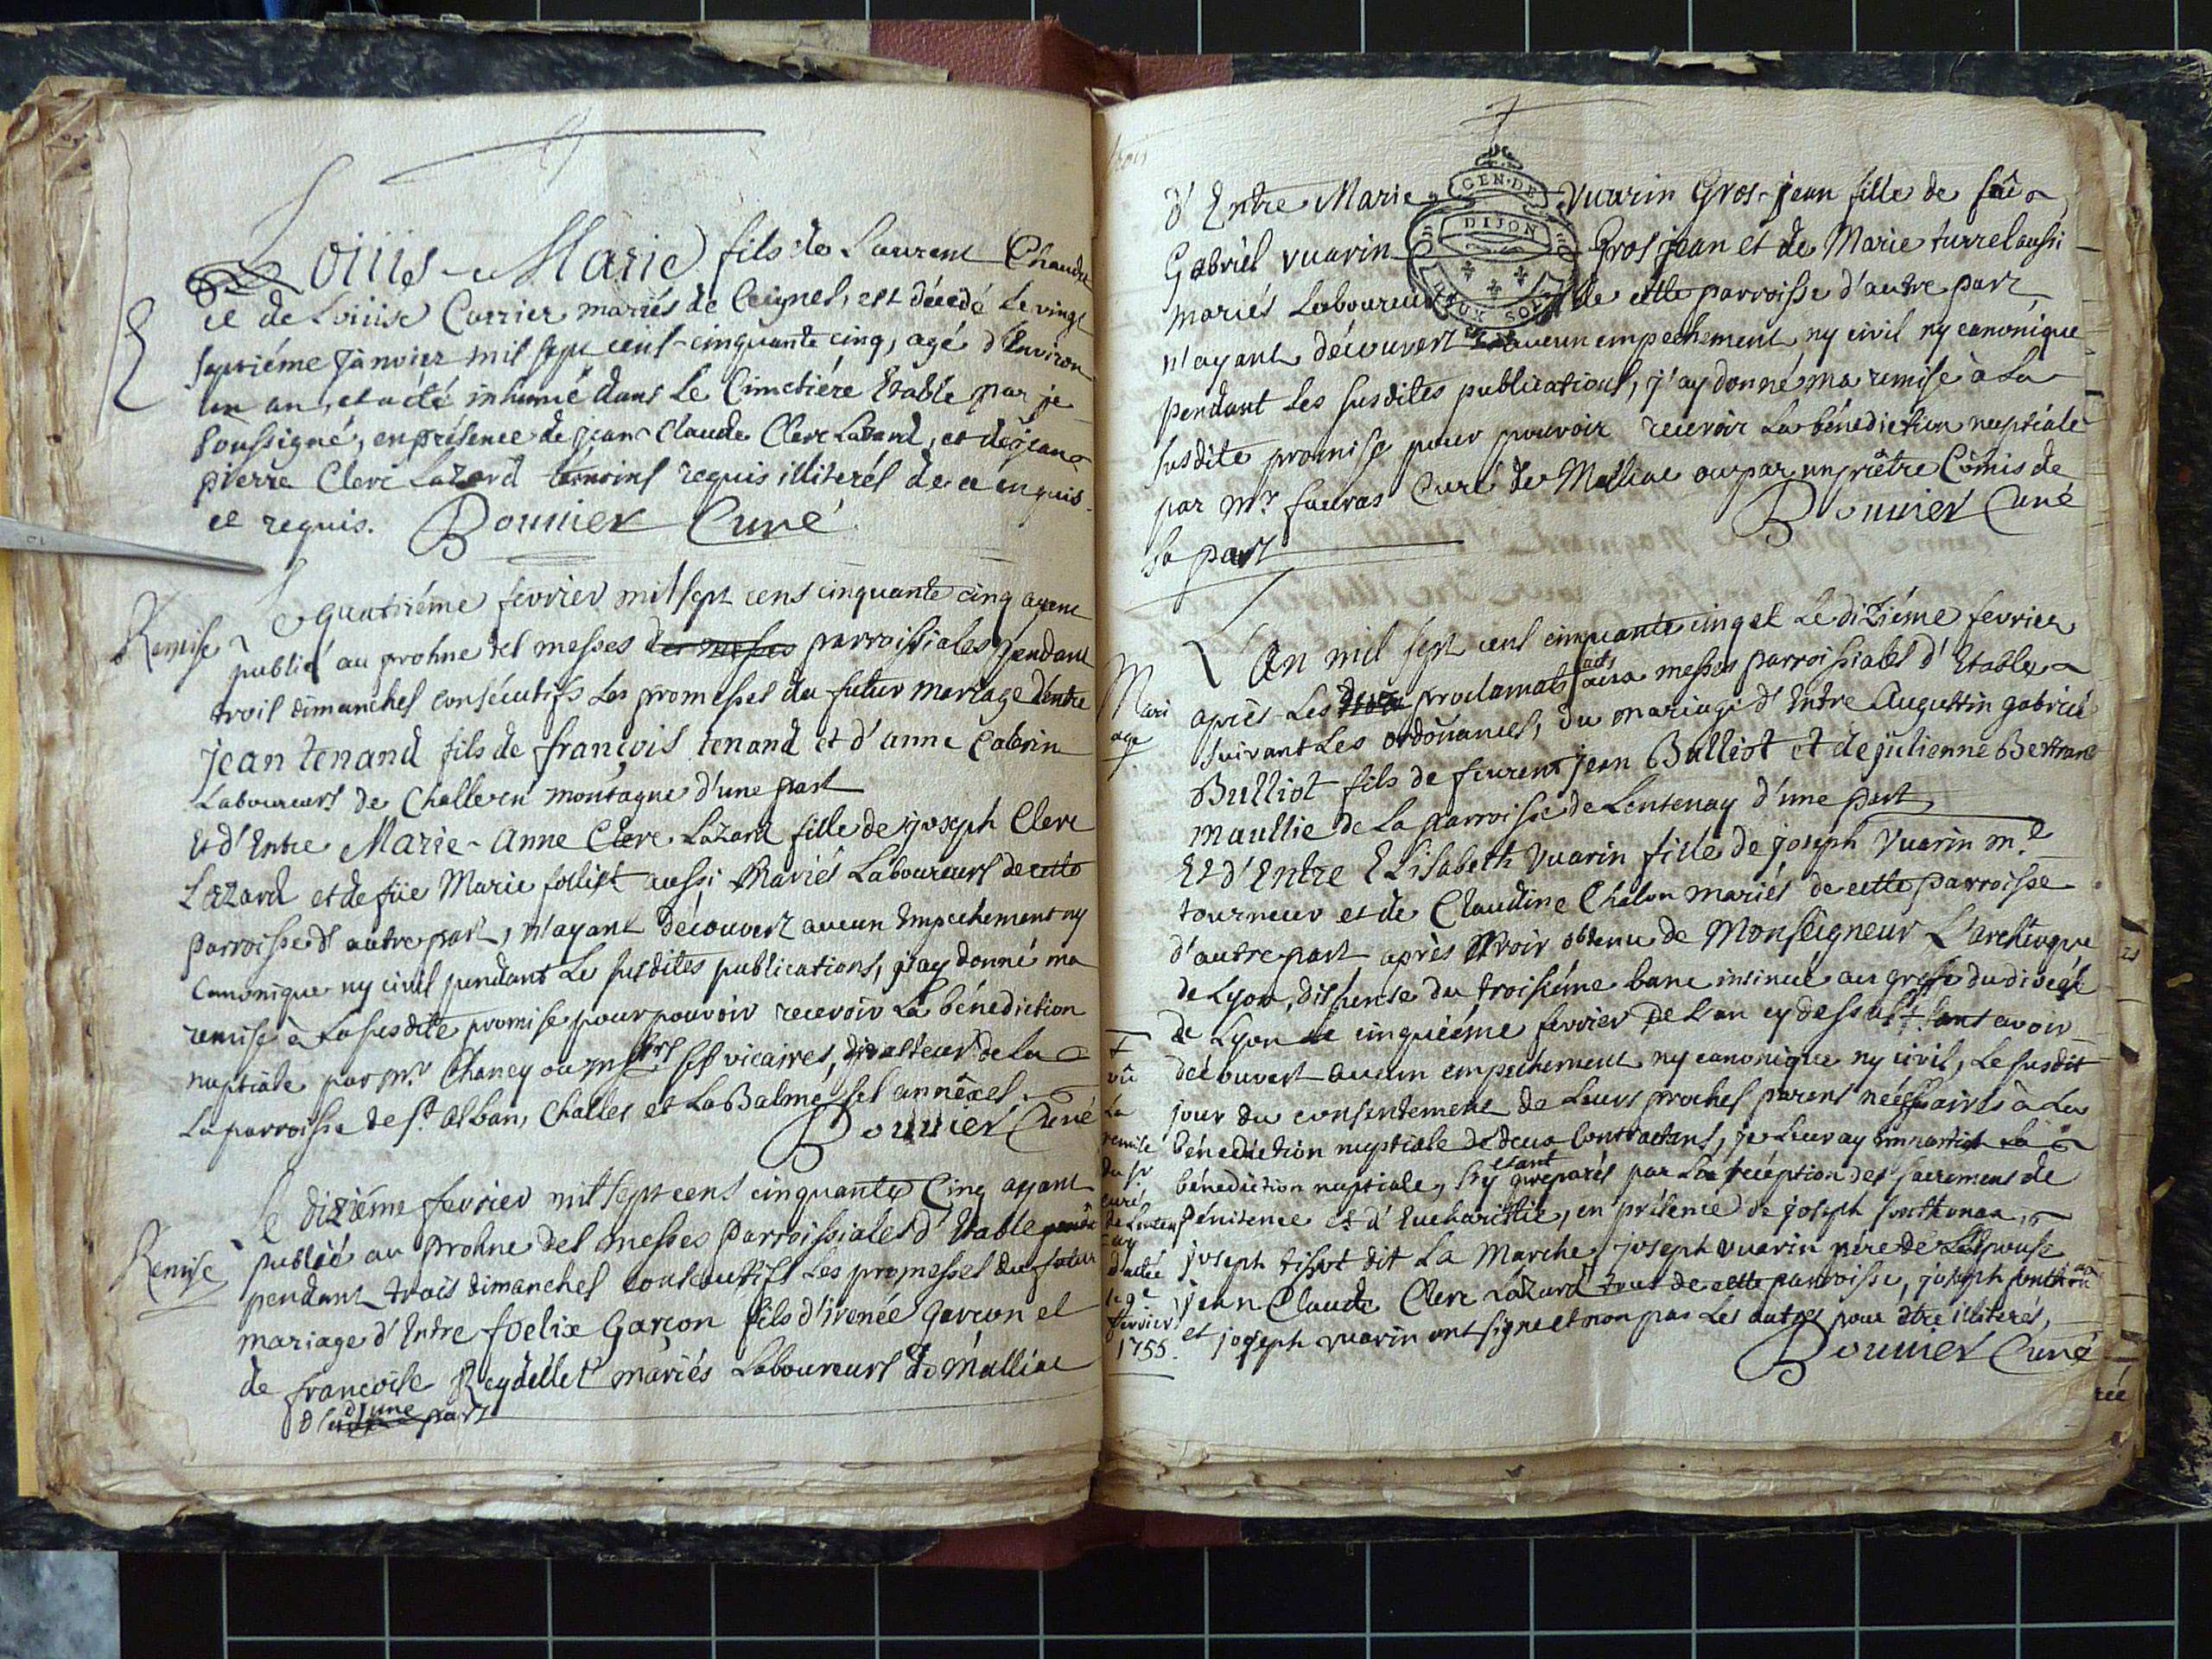 Loüis-Marie fils de Laurent Chaudet
et de Loüise Carrier mariés de Ceignes, est décedé le vingt
septiéme janvier mil sept cens-cinquante cinq, agé d'Environ
un an, et a été inhumé dans le Cimetiére Etable par je
soussigné, en présence de jean-Claude Clerc Lazard, et de jean
pierre Clerc Lazard témoins requis illiterés de ce enquis
et requis. Bouvier Curé
Remise
Le quatriéme fevrier mil sept cens cinquante cinq ayant
publié au prohne des messes des messes parroissiales pendant
trois dimanches consécutifs les promesses du futur mariage d'entre
jean tenand fils de françois tenand et d'anne Cabrin
Laboureurs de Challe en montagne d'une part
Et d'Entre Marie-Anne Clerc Lazard fille de joseph Clerc
Lazard et de füe Marie follist aussi Mariés Laboureurs de cette
parroisse d'autre part, n'ayant découvert aucun Empechement ny
Canonique ny civil pendant les susdites publications, j'ay donné ma
remise à la susdite promise pour pouvoir recevoir la bénediction
nuptiale par mr. Chaney ou ses vicaires, de la
La parroisse de st. alban, Challes et La Balme ses annéxes.
Bouvier Curé
Remise
Le diziéme fevrier mil sept cens cinquante Cinq ayant
publié au prohne des messes Parroissiales d'Etable
pendant trois dimanches consecutifs les promesses du futur
mariage d'Entre foelix Garçon fils d'irenée Garçon et
de françoise Reydellet mariés Laboureurs de Malliac
d'une part
d'Entre Marie Vuarin Gros-jean fille de
GEN·DE
DIJON
DEUX SOLS
Gabriel vuarin Gros jean et de Marie turrel aussi
mariés Laboureurs de cette parroisse d'autre part
n'ayant découvert aucun empechement ny civil ny canonique
pendant les susdites publications, j'ay donné ma remise à la
susdite promise pour pouvoir recevoir la bénediction nuptiale
par mr. fauras Curé de Malliac ou par un prêtre Comis de
sa part
Bouvier Curé
Mari
age
L'An mil sept cens cinquante cinq et le diziéme fevrier
après les proclamats faits aux messes parroissiales d'Etable
suivant les ordonances, du mariage d'Entre Augustin gabriel
Bulliot fils de feurent jean Bulliot et de julienne Bertrand
maullie de la parroisse de Lentenay d'une part,
Et d'Entre Elisabeth Vuarin fille de joseph Vuarin me.
tourneur et de Claudine Chalon mariés de cette parroisse
d'autre part après Avoir obtenu de Monseigneur L'archevêque
de Lyon, dispense du troisiéme banc insinué au greffe du diocèse
de Lyon le cinquiéme fevrier de l'an cy dessus ‡ sans avoir
découvert aucun empechement ny canonique ny civil, le susdit
jour du consentement de leurs proches parens nécessaires à la
bénediction nuptiale de deux Contractans, je leur ay impartis la
bénediction nuptiale, s'y étant préparés par la réception des sacremens de
Pénitence et d'Eucharistie, en présence de joseph
joseph tissot dit La Marche, joseph vuarin père de L'Epouse
jean Claude Clerc Lazard tous de cette parroisse, joseph
et joseph vuarin ont signé et non pas les autres pour être illiterés,
Bouvier Curé
‡
vû
la
remise
du sr
curé
de Lenten
ay
datée
le 9e
fevrier
1755.